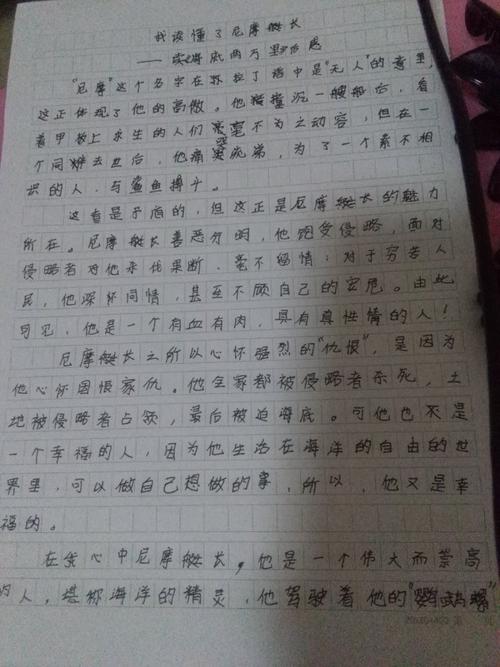 我读懂了尼摩艇长
——读《海底两万里》有感
"尼摩"这个名字在拉丁语中是"无人"的意思,
这正体现了他的高傲。他撞沉一艘船后,看
着甲板上求生的人们毫不为之动容,但在一
个同伴去世后,他痛哭流涕,为了一个素不相
识的人,与鲨鱼搏斗。
这看是矛盾的,但这正是尼摩艇长的魅力
所在。尼摩艇长善恶分明,他饱受侵略,面对
侵略者对他杀伐果断,毫不留情;对于穷苦人
民,他深怀同情,甚至不顾自己的安危。由此
可见,他是一个有血有肉,具有真性情的人!
尼摩艇长之所以心怀强烈的"仇恨",是因为
他心怀国恨家仇。他全家都被侵略者杀死,土
地被侵略者占领,最后被迫海底。可他也不是
一个幸福的人,因为他生活在海洋的自由的世
界里,可以做自己想做的事,所以,他又是幸
福的。
在我心中尼摩艇长,他是一个伟大而崇高
的人,堪称海洋的精灵,他驾驶着他的"鹦鹉螺